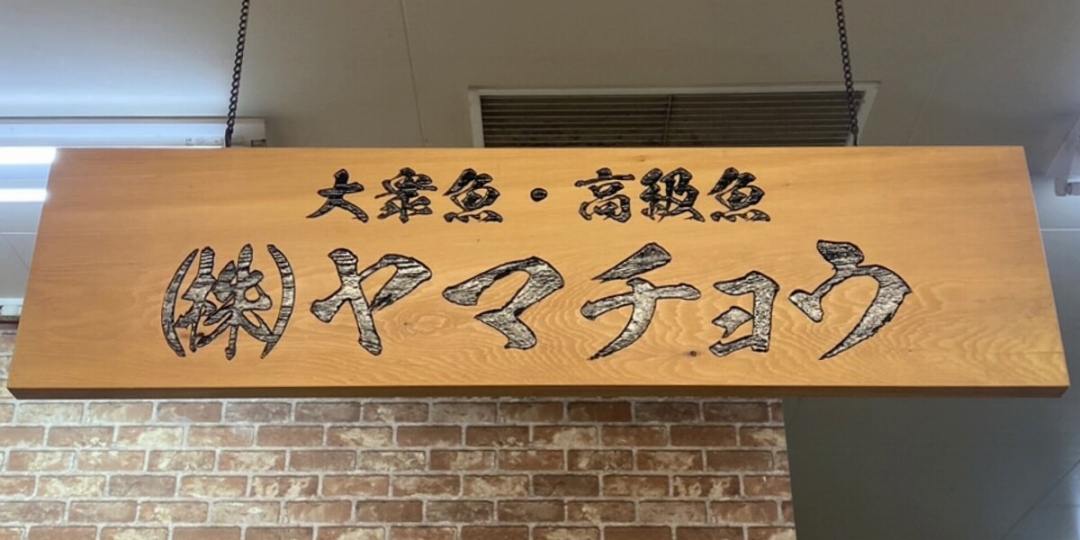 大衆魚・高級魚
㈱ヤマチョウ